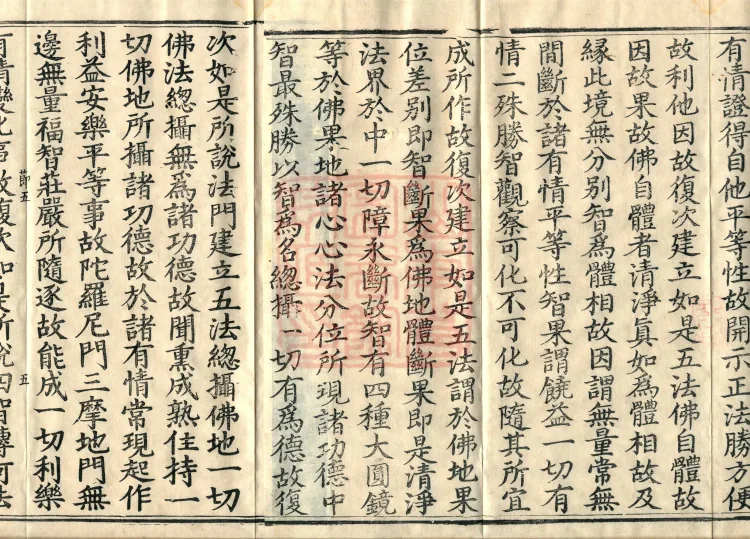 有情證得自他平等性故開示正法勝方便
故利他因故復次建立如是五法佛自體故
因故果故佛自體者清淨真如為體相故及
緣此境無分別智為體相故因謂無量常無
間斷於諸有情平等性智果謂饒益一切有
情二殊勝智觀察可化不可化故隨其所宜
成所作故復次建立如是五法謂於佛地果
位差別即智斷果為佛地體斷果即是清淨
法界於中一切障永斷故智有四種大圓鏡
等於佛果地諸心心法分位所現諸功德中
智最殊勝以智為名總攝一切有為德故復
次如是所說法門建立五法總攝佛地一切
佛法總攝無為諸功德故聞熏成熟住持一
切佛地所攝諸功德故於諸有情常現起作
利益安樂平等事故陀羅尼門三摩地門無
邊無量福智莊嚴所隨逐故能成一切利樂
節五 五
有情變化事故復次如是所說四智轉何法